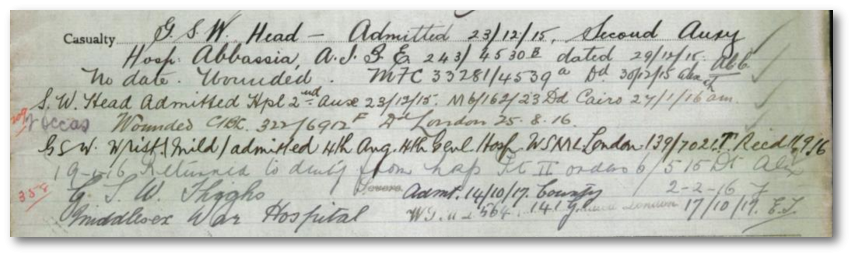 Casualty G. S. W. Head — Admitted 23/12/15, Second Auxy
Hosp. Abbassia, A.I.S.E 243/4530B dated 29/12/15. Abb
No date. Wounded. MFC 33281/4539a Dd 30/12/15
S. W. Head Admitted Hpl 2nd Aux 23/12/15. M6/162/23 Dd Cairo 27/1/16
2nd occas Wounded 322/6902F Dd London 25.8.16.
G.S.W. Wrist (Mild) admitted 4th Aug. 4th Genl Hosp. London 139/702 Recd 9/16
19-1-16 Returned to duty from hosp Pt II orders 6/515 Dt Alex
G. S. W. Thighs Severe Admt. 14/10/17. County 2-2-16
Middlesex War Hospital London 17/10/17.